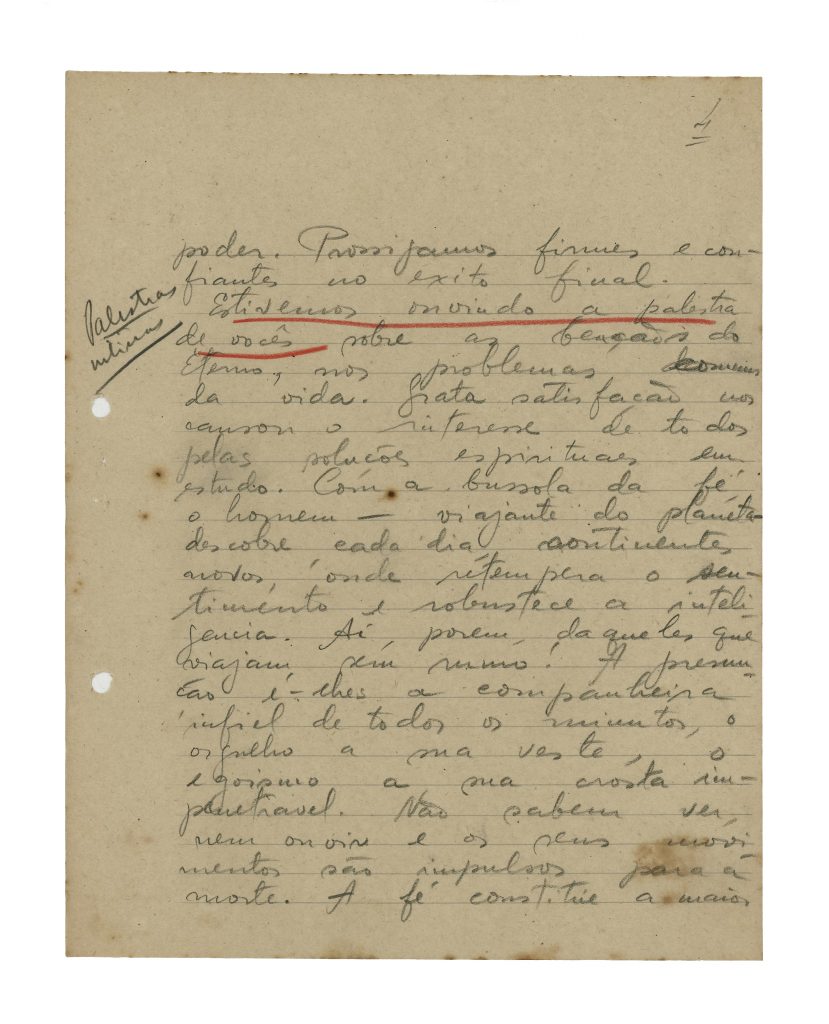 4
poder. Prossigamos firmes e con-
fiantes no exito final.
Palestras
intimas
Estivemos ouvindo a palestra
de vocês sobre as bençãos do
Eterno, nos problemas comuns
da vida. Grata satisfação nos
causou o interesse de todos
pelas soluções espirituaes em
estudo. Com a bussola da fé
o homem — viajante do planéta—
descobre cada dia continentes
novos, onde retempera o sen-
timento e robustece a inteli
gencia. Ai, porem, daqueles que
viajam sem rumo! A presun-
ção é-lhes a companheira
infiel de todos os minutos, o
orgulho a sua veste, o
egoismo a sua crosta im-
penetravel. Não sabem ver,
nem ouvir e os seus movi
mentos são impulsos para a
morte. A fé constitue a maior